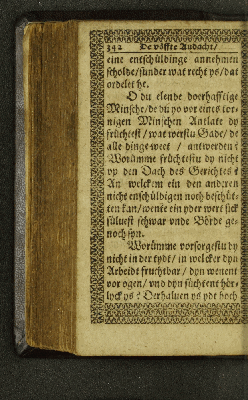 392 De vöffte Andacht/
eine entschüldinge annehmen
scholde/sunder wat recht ys/dat
ordelet he.
O du elende doerhafftige
Minsche/de du yo vor eines tor-
nigen Minschen Antlate dy
früchtest/wat werstu Gade/de
alle dinge weet / antwerden?
Worümme früchtestu dy nicht
vp den Dach des Gerichtes?
An welckem ein den anderen
nicht enschüldigen noch beschüt-
ten kan/wente ein yder wert sick
süluest schwar vnde Börde ge-
noch syn.
Worümme vorsorgestu dy
nicht in der tydt/ in welcker dyn
Arbeidt fruchtbar/ dyn wenent
vor ogen/ vnd dyn süchtent hör-
lyck ys? Derhaluen ys ydt hoch